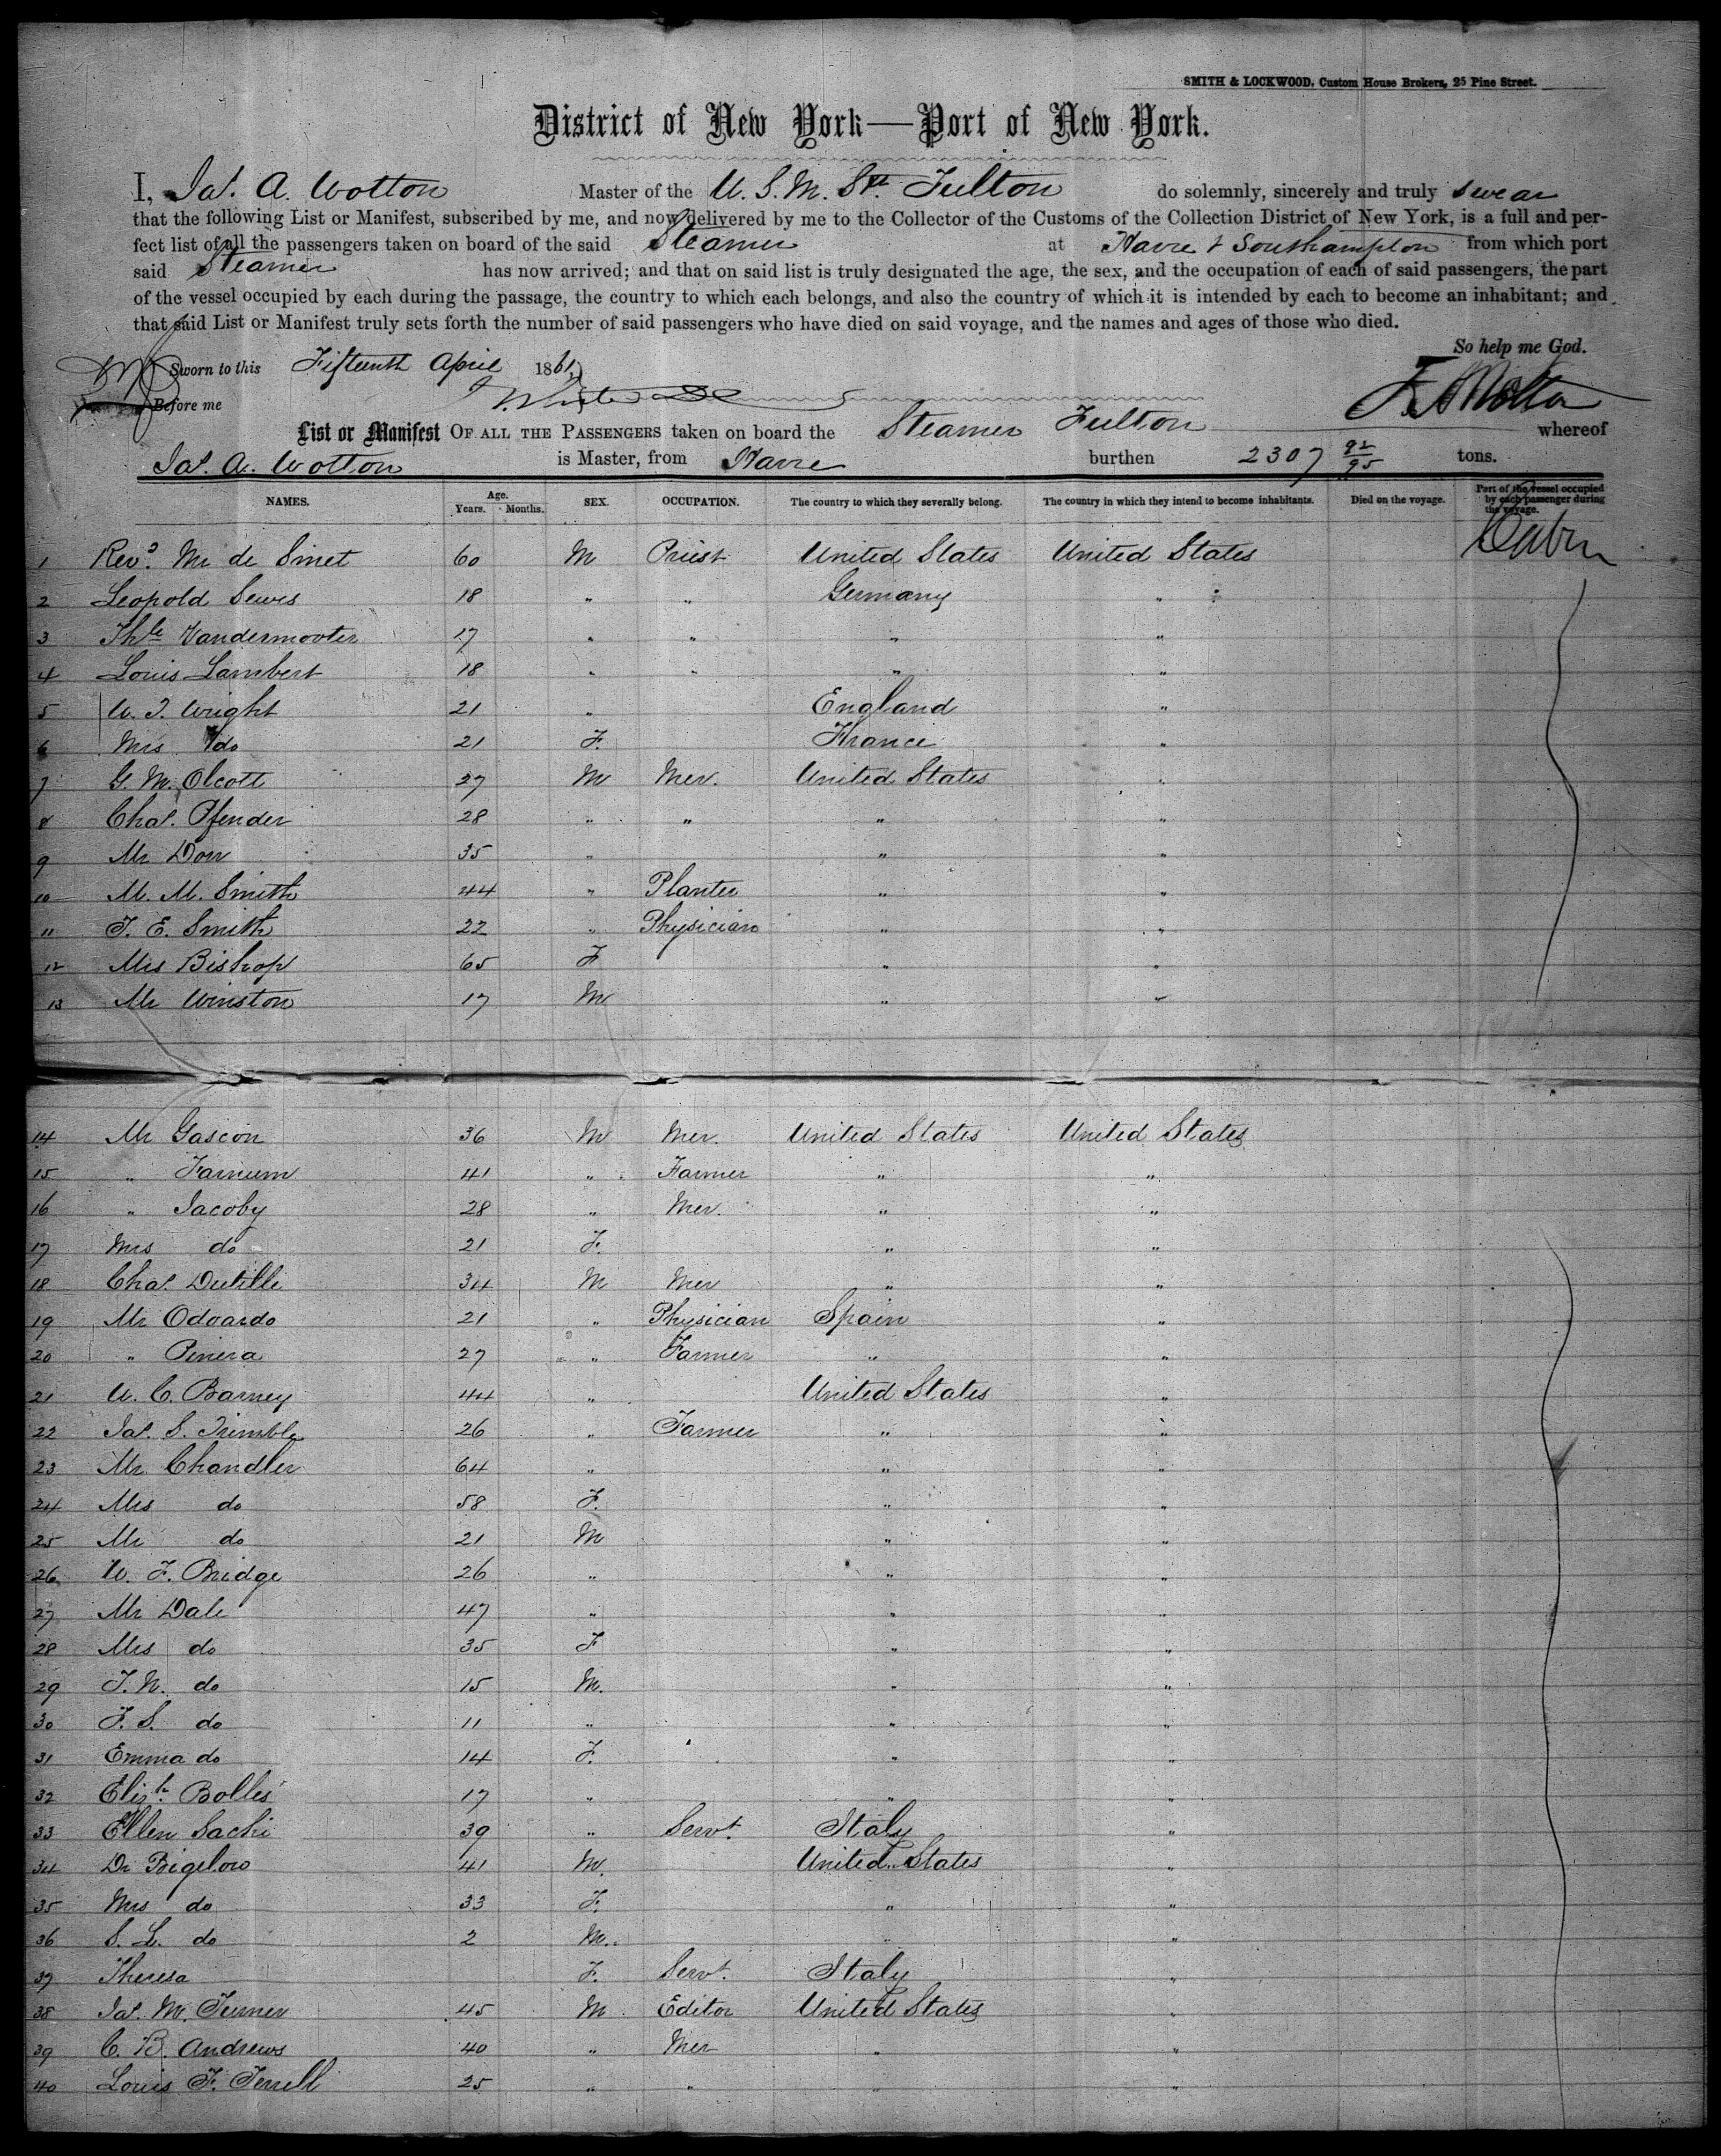 SMITH & LOCKWOOD, Custom House Brokers, 25 Pine Street.
District of New York—Port of New York.
I, Jas. A. Wotton Master of the U. S. M. Str. Fulton do solemnly, sincerely and truly swear
that the following List or Manifest, subscribed by me, and now delivered by me to the Collector of the Customs of the Collection District of New York, is a full and per-
fect list of all the passengers taken on board of the said Steamer at Havre & Southampton from which port
said Steamer has now arrived; and that on said list is truly designated the age, the sex, and the occupation of each of said passengers, the part
of the vessel occupied by each during the passage, the country to which each belongs, and also the country of which it is intended by each to become an inhabitant; and
that said List or Manifest truly sets forth the number of said passengers who have died on said voyage, and the names and ages of those who died.
So help me God.
Sworn to this Fifteenth April 1861
Before me
List or Manifest OF ALL THE PASSENGERS taken on board the Steamer Fulton whereof
Jas. A. Wotton is Master, from Havre burthen 2307 92/95 tons.
NAMES. Age. Years. Months. SEX. OCCUPATION. The country to which they severally belong. The country in which they intend to become inhabitants. Died on the voyage. Part of the vessel occupied by each passenger during the voyage.
1 Revd. Mr de Smet 60 M Priest United States United States Cabin
2 Leopold Sewes 18 " " Germany "
3 Vandermooter 17 " " " "
4 Louis Lambert 18 " " " "
5 W. T. Wright 21 " England "
6 Mrs do 21 F. France "
7 G. M. Olcott 27 M Mer. United States "
8 Chas. Pfender 28 " " " "
9 Mr Dow 35 " " "
10 M. M. Smith 44 " Planter " "
11 T. E. Smith 22 " Physician " "
12 Mrs Bishop 65 F " "
13 Mr Winston 17 M " "
14 Mr Gascon 36 M Mer. United States United States
15 " Farnum 41 " Farmer " "
16 " Jacoby 28 " Mer. " "
17 Mrs do 21 F. " "
18 Chas. Dutille 34 M Mer " "
19 Mr Odoardo 21 " Physician Spain "
20 " Pinera 27 " Farmer " "
21 W. C. Barney 44 " United States "
22 Jas. S. Trimble 26 " Farmer " "
23 Mr Chandler 64 " " "
24 Mrs do 58 F. " "
25 Mr do 21 M " "
26 W. F. Bridge 26 " " "
27 Mr Dale 47 " " "
28 Mrs do 35 F " "
29 T. N. do 15 M. " "
30 F. S. do 11 " " "
31 Emma do 14 F. " "
32 Elizh. Bolles 17 " " "
33 Ellen Sachi 39 " Servt. Italy "
34 Dr Bigelow 41 M. United States "
35 Mrs do 33 F. " "
36 S. L. do 2 M. " "
37 Theresa F. Servt. Italy "
38 Jas. M. Turner 45 M Editor United States "
39 C. B. Andrews 40 " Mer " "
40 Louis F. Terrell 25 " " " "